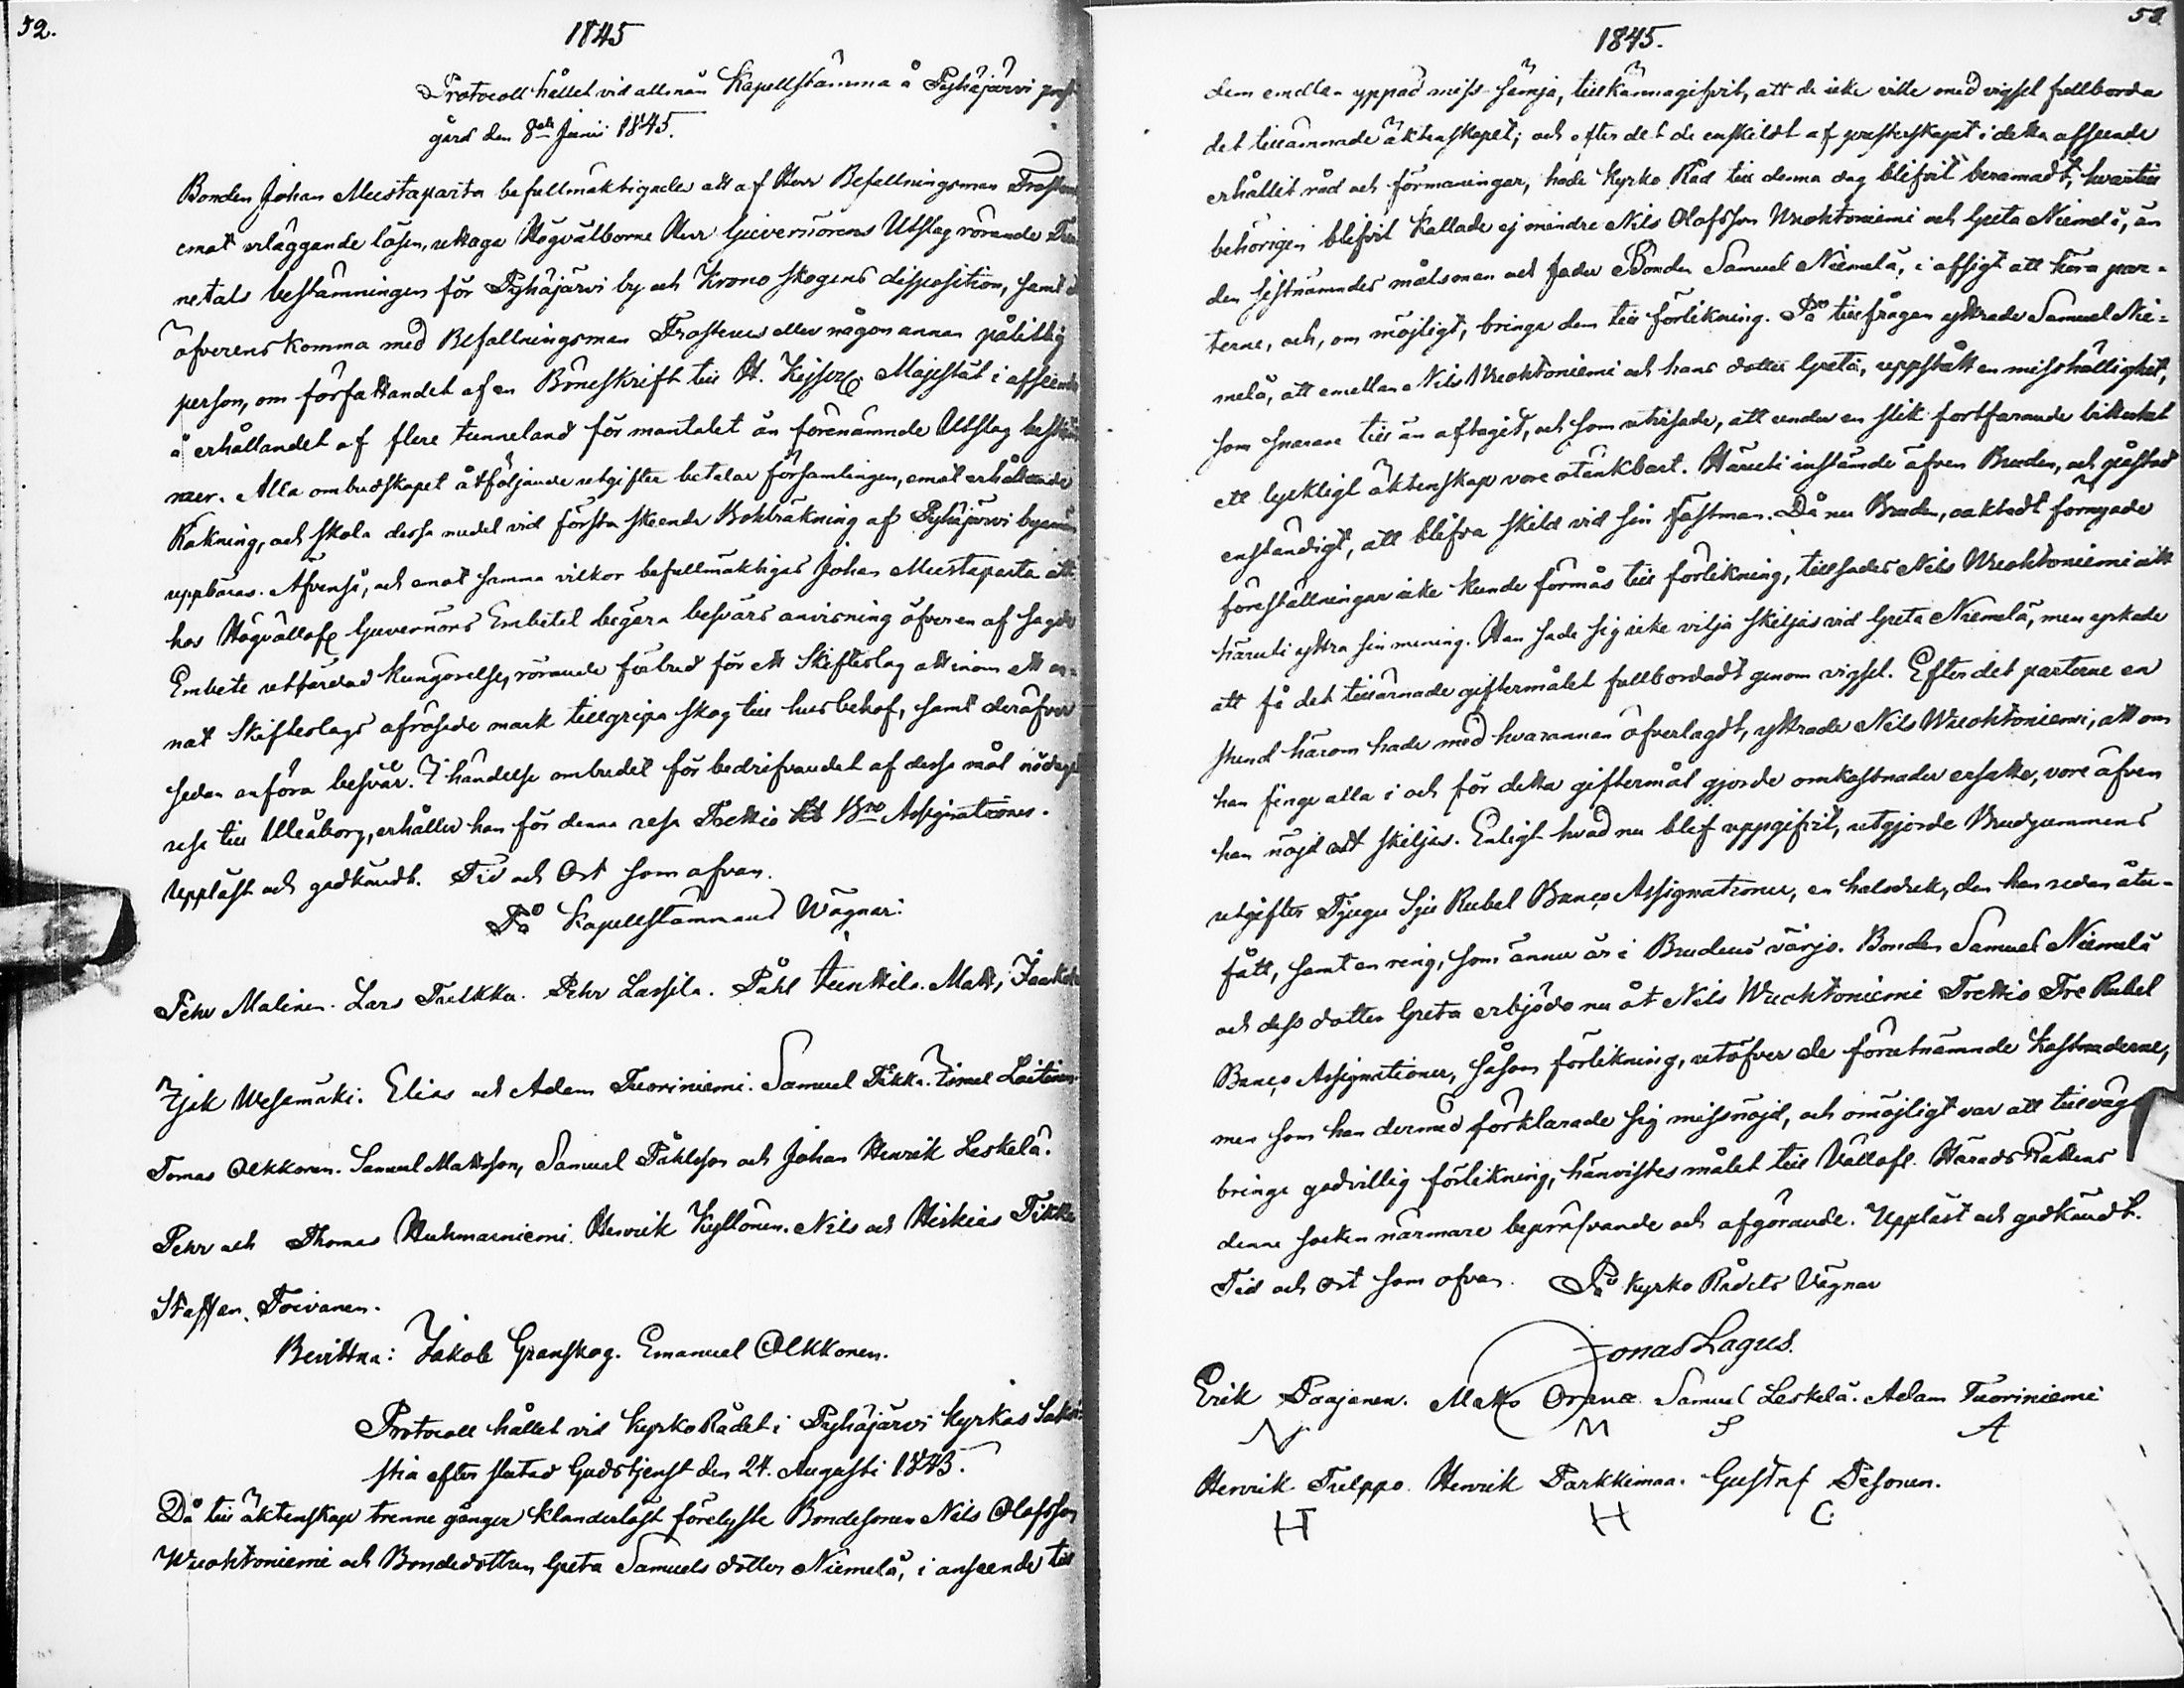 52.
1845
Protocoll hållet vid allmän Kapellstämma å Pyhäjärvi prest
gård den 8de Junii 1845.
Bonden Johan Mustaparta befullmäktigades att af Herr Befallningsman Frosterus
emot erläggande lösen, uttaga Högvälborne Herr Guvernörens Utslag rörande
netals bestämningen för Pyhäjärvi by och Krono skogens disposition, samt
öfverenskomma med Befallningsman Frosterus eller någon annan pålitlig
person, om författandet af en Böneskrift till H. Kejserl. Majestät i afseende
å erhållandet af flere tunneland för mantalet än förenämnde Utslag bestäm
mer. Alla ombudskapet åtföljande utgifter betalar församlingen, emot erhållande
Räkning, och skola dessa medel vid första skeende Bohträkning af Pyhäjärvi byamän
uppbäras. Äfvenså, och emot samma vilkor befullmäktigas Johan Mustaparta att
hos Högvällofl Guvernörs Embetet begära besvärs anvisning öfver en af sagde
Embete utfärdad kungörelse, rörande förbud för ett Skifteslag att inom ett an-
nat Skifteslags afrösade mark tillgripa skog till husbehof, samt deröfver
sedan anföra besvär. I händelse ombudet för bedrifvandet af dessa mål nödgas
resa till Uleåborg, erhåller han för denna resa Trettio Bco Assignationer.
Uppläst och godkändt. Tid och Ort som ofvan.
På Kapellstämmans Wägnar:
Pehr Malinen. Lars Tulkku. Pehr Lassila. Påhl Junttila. Matts Jaakola
Isak Wesamäki. Elias och Adam Tuoriniemi. Samuel Tikka. Ismael Laitinen.
Tomas Olkkonen. Samuel Mattsson, Samuel Påhlsson och Johan Henrik Leskelä.
Pehr och Thomas Huhmarniemi. Henrik Kyllönen. Nils och Hiskias Tikka
Staffan Toivanen.
Bevittna: Jakob Granskog. Emanuel Olkkonen.
Protocoll hållet vid Kyrko Rådet i Pyhäjärvi Kyrkas Sakri-
stia efter slutad Gudstjenst den 24. Augusti 1845.
Då till äktenskap trenne gånger klanderlöst förelyste Bondesonen Nils Olofsson
Wuohtoniemi och Bondedottren Greta Samuels dotter Niemelä, i anseende till
53.
1845.
dem emellan yppad miss-sämja, tillkännagifvit, att de icke ville med vigsel fullborda
det tillämnade äktenskapet; och efter det de enskildt af presterskapet i detta afseende
erhållit råd och förmaningar, hade Kyrko Råd till denna dag blifvit beramadt, hvartill
behörigen blifvit kallade ej mindre Nils Olofsson Wuohtoniemi och Greta Niemelä, än
den sistnämndes målsman och fader Bonden Samuel Niemelä, i afsigt att höra par-
terne, och, om möjligt, bringa dem till förlikning. På tillfrågan yttrade Samuel Nie-
melä, att emellan Nils Wuohtoniemi och hans dotter Greta, uppstått en misshällighet,
som snarare till än aftagit, och som utvisade, att under en slik fortfarande bitterhet
ett lyckligt äktenskap vore otänkbart. Häruti instämde äfven Bruden, och påstod
enständigt, att blifva skild vid sin Fästman. Då nu Bruden, oaktadt förnyade
föreställningar icke kunde förmås till förlikning, tillsades Nils Wuohtoniemi att
häruti yttra sin mening. Han sade sig icke vilja skiljas vid Greta Niemelä, men yrkade
att få det tillärnade giftermålet fullbordadt genom vigsel. Efter det parterne en
stund härom hade med hvarannan öfverlagdt, yttrade Nils Wuohtoniemi, att om
han finge alla i och för detta giftermål gjorde omkostnader ersatte, vore äfven
han nöjd att skiljas. Enligt hvad nu blef uppgifvit, utgjorde Brudgummens
utgifter Tjugu Sju Rubel Banco Assignationer, en halsduk, den han redan åter-
fått, samt en ring, som ännu är i Brudens värjo. Bonden Samuel Niemelä
och dess dotter Greta erbjödo nu åt Nils Wuohtoniemi Trettio Tre Rubel
Banco Assignationer, såsom förlikning, utöfver de förutnämnde kostnaderne,
men som han dermed förklarade sig missnöjd, och omöjligt var att tillväga
bringa godvillig förlikning, hänvistes målet till Vällofl. Härads Rättens
denna socken närmare bepröfvande och afgörande. Uppläst och godkändt.
Tid och Ort som ofvan. På Kyrko Rådets Vägnar
Jonas Lagus.
Erik Paajanen. Matts Orava. Samuel Leskelä. Adam Tuoriniemi
M S A
Henrik Tulppo. Henrik Parkkimaa. Gustaf Pesonen.
HT H G